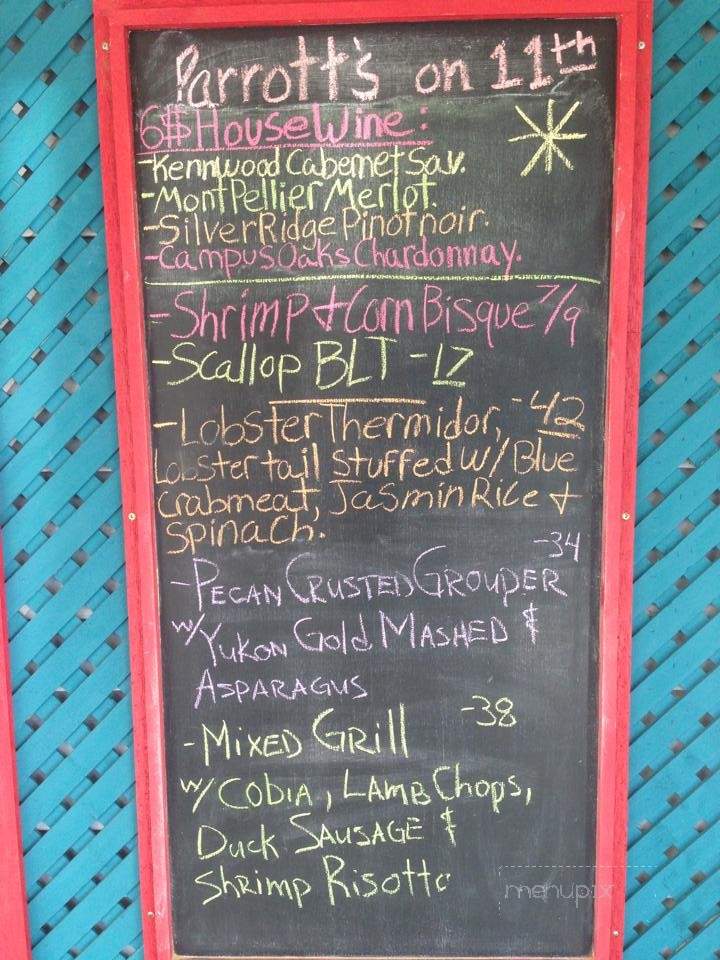 Parrott's on 11th
6$ House Wine:
-Kennwood Cabernet Sav.
-MontPellier Merlot.
-Silver Ridge Pinot noir.
-Campus Oaks Chardonnay.
-Shrimp & Corn Bisque 7/9
-Scallop BLT -17
-Lobster Thermidor, -42
Lobster tail stuffed w/ Blue
Crabmeat, Jasmin Rice &
Spinach.
-34
-Pecan Crusted Grouper
w/ Yukon Gold Mashed &
Asparagus
-38
-Mixed Grill
w/ Cobia, Lamb Chops,
Duck Sausage &
Shrimp Risotto
menupix